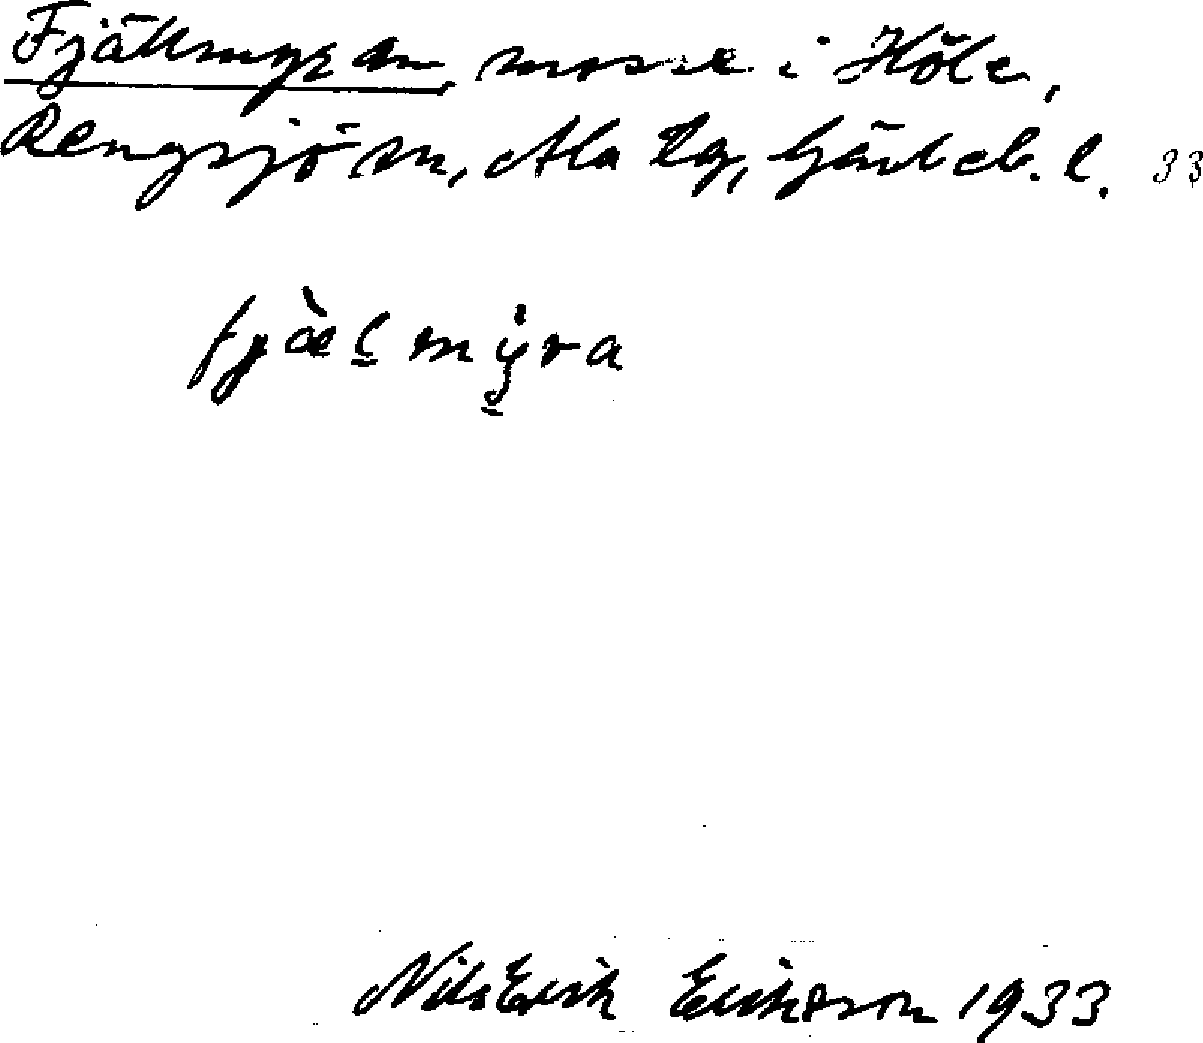 Fjällmyran, mosse i Höle,
Rengsjö sn, Ala tg, Gävleb. l. 33
fjæ̀l̠ mẙra
Nils Erik Eriksson 1933